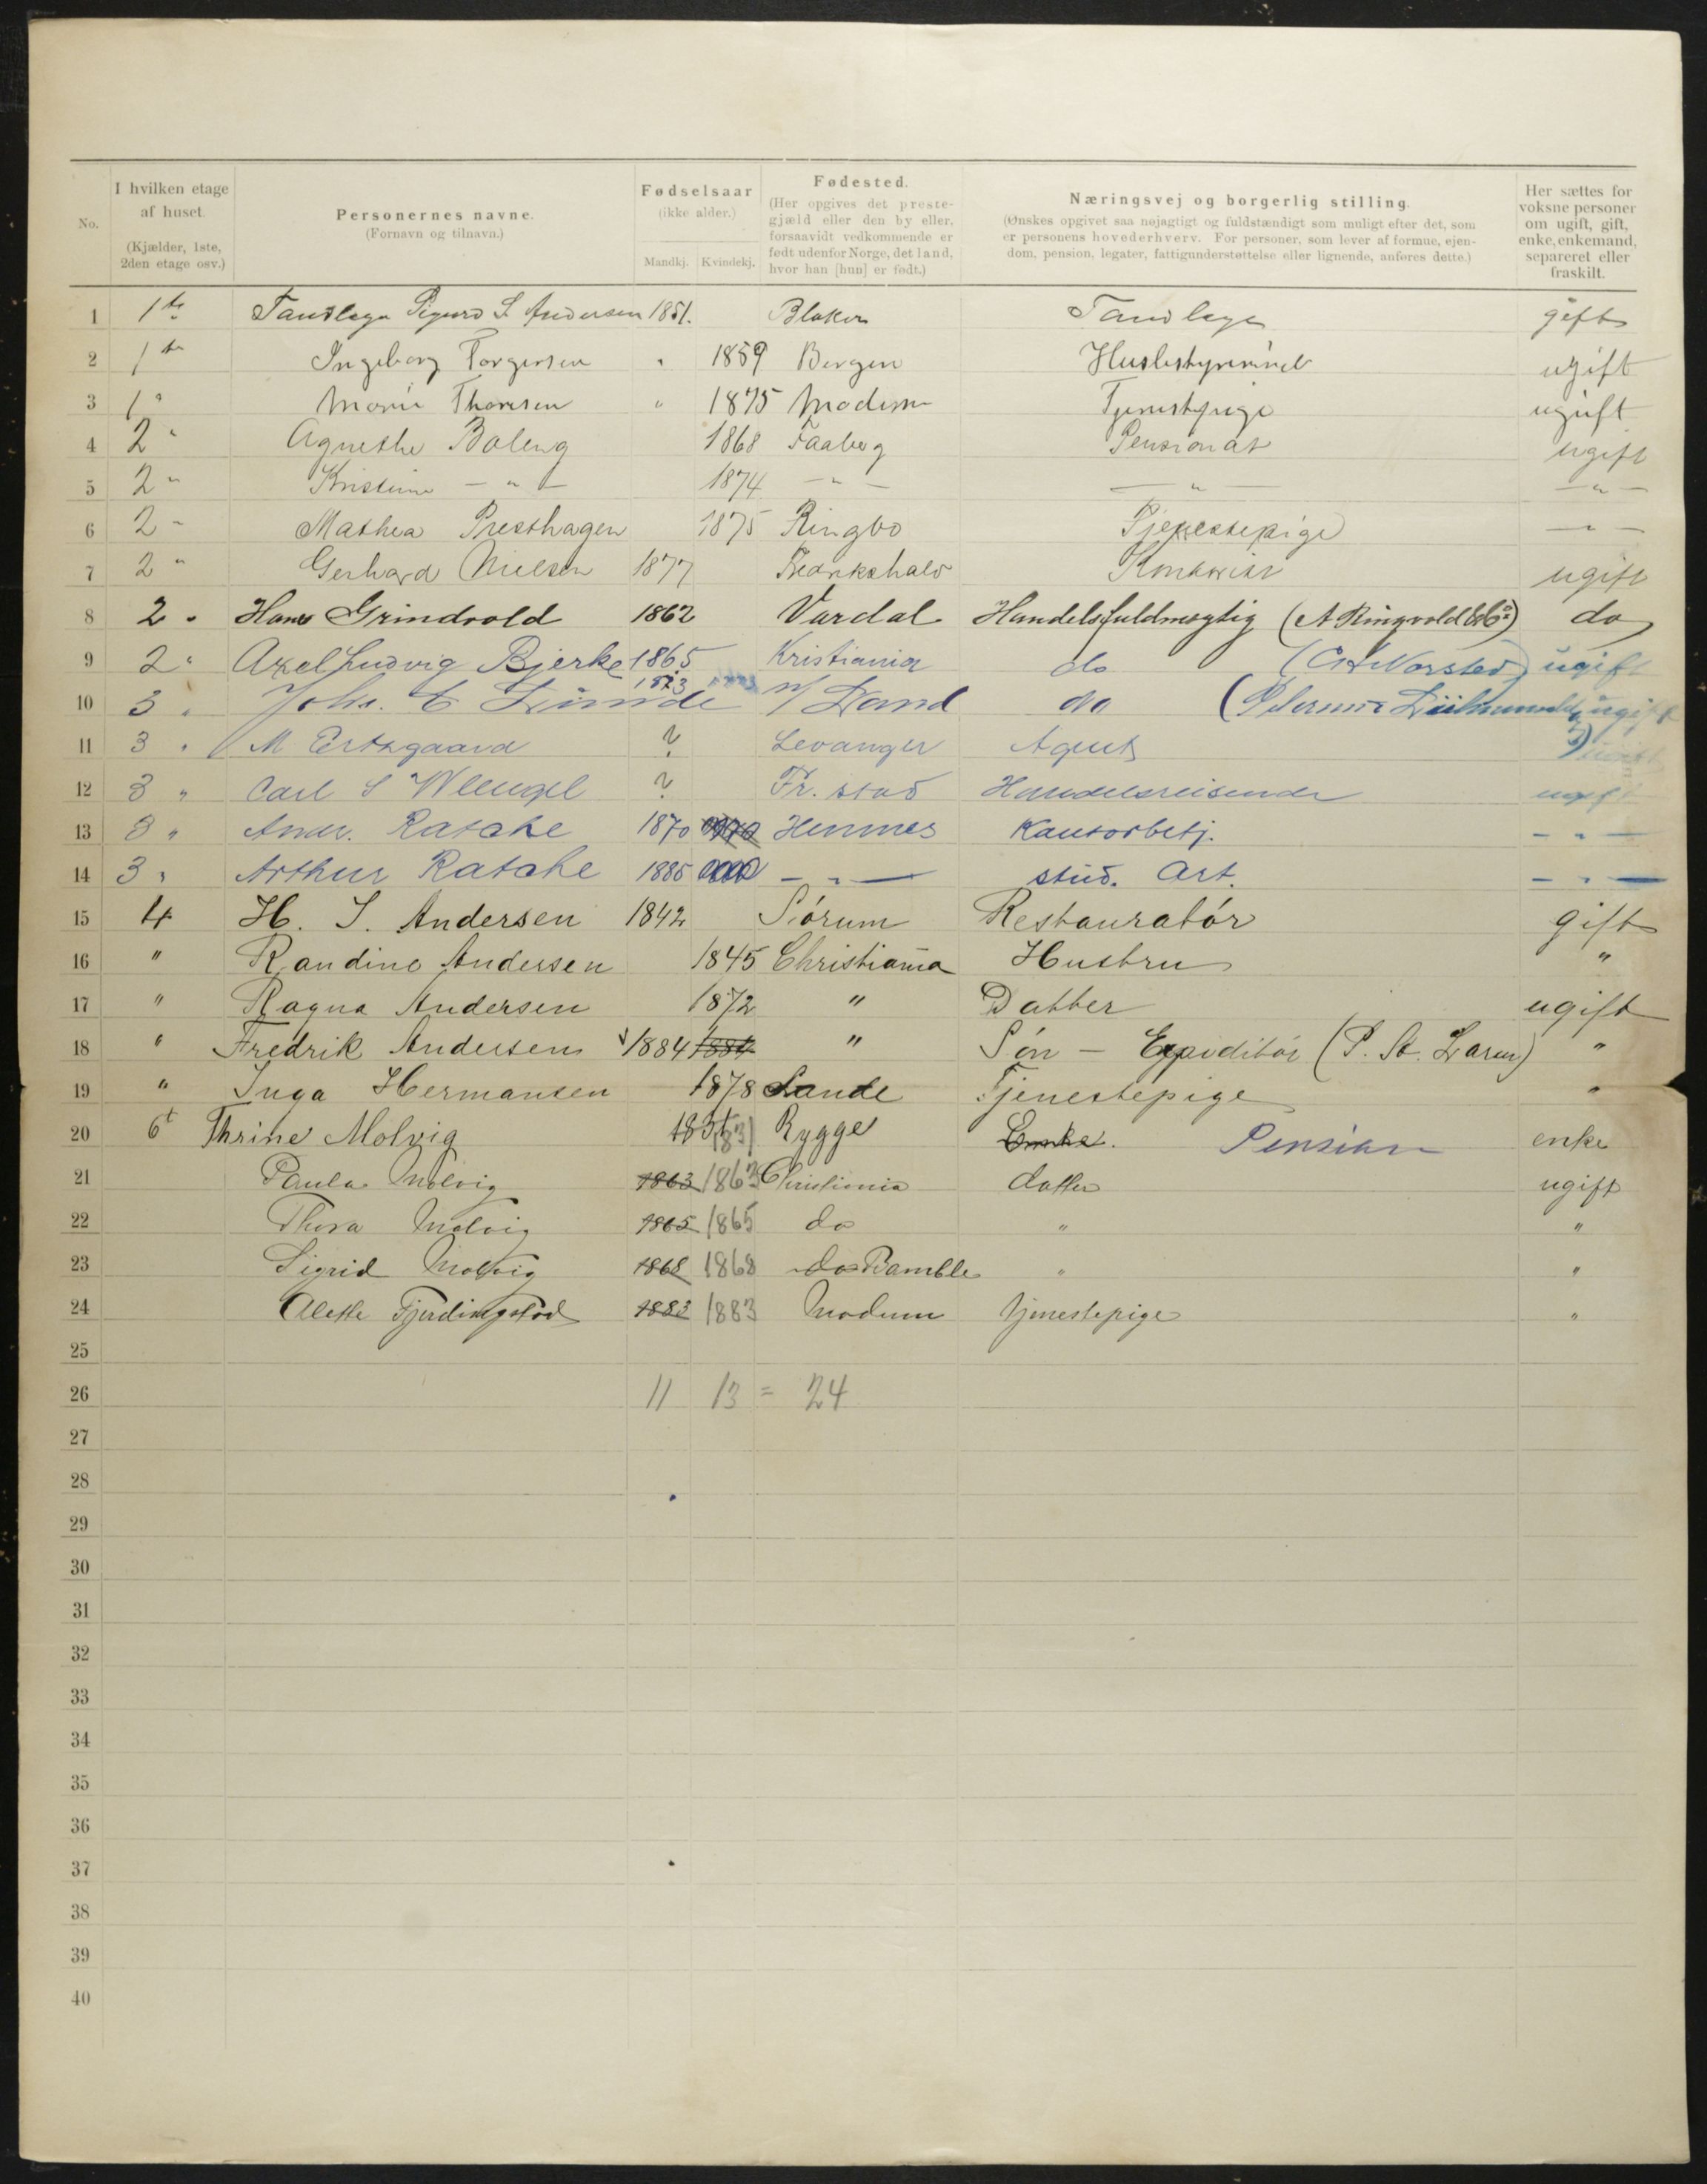 No.
I hvilken etage af huset.
(Kjælder, 1ste, 2den etage osv.)
Personernes navne.
(Fornavn og tilnavn.)
Fødselsaar
(ikke alder.)
Mandkj. Kvindekj.
Fødested.
(Her opgives det prestegjæld eller den by eller, forsaavidt vedkommende er født udenfor Norge, det land, hvor han [hun] er født.)
Næringsvej og borgerlig stilling.
(Ønskes opgivet saa nøjagtigt og fuldstændigt som muligt efter det, som er personens hovederhverv. For personer, som lever af formue, ejendom, pension, legater, fattigunderstøttelse eller lignende, anføres dette.)
Her sættes for voksne personer om ugift, gift, enke, enkemand, separeret eller fraskilt.
1 1ste Tandlæge Sigurd S. Andersen 1851. Blaker Tandlæge gift
2 1ste Ingeborg Torgersen " 1859 Bergen Husbestyrerinde ugift
3 1" Marie Thoresen " 1875 Modum Tjenestepige ugift
4 2" Agnethe Boleng 1868 Faaberg Pensionat ugift
5 2" Kristine — " — 1874 — " — — " — — " —
6 2" Mathea Presthagen 1875 Ringbo Tjenestepige — " —
7 2" Gerhard Nielsen 1877 Fredrikshald Kontorist ugift
8 2" Hans Grindvold 1862 Vardal Handelsfuldmægtig (A Ringvold & Co) do
9 2" Axel Ludvig Bjerke 1865 Kristiania do ugift
10 3" Johs. C Lunde 1873 n/ Land do ugift
11 3" M Ertsgaard ? Levanger Agent ugift
12 3" Carl S ? Fr. stad Handelsreisende ugift
13 3" Andr. Ratche 1870 Hemnes Kontorbetj. — " —
14 3" Arthur Ratche 1885 — " — stud. Art. — " —
15 4 H. S. Andersen 1842 Sørum Restauratør gift
16 " Randine Andersen 1845 Christiania Hustru "
17 " Ragna Andersen 1872 " Datter ugift
18 " Fredrik Andersen 1884 1884 " Søn — Expeditør (P. St. Larsen) "
19 " Inga Hermansen 1878 Sande Tjenestepige "
20 6t Thrine Molvig 1831 1831 Rygge Enke. Pension enke
21 Paula Molvig 1863 1863 Christiania datter ugift
22 Thora Molvig 1865 1865 do " "
23 Sigrid Molvig 1868 1868 do Bamble " "
24 Alette Fjerdingstad 1883 1883 Modum tjenestepige "
25
26 11 13 = 24
27
28
29
30
31
32
33
34
35
36
37
38
39
40